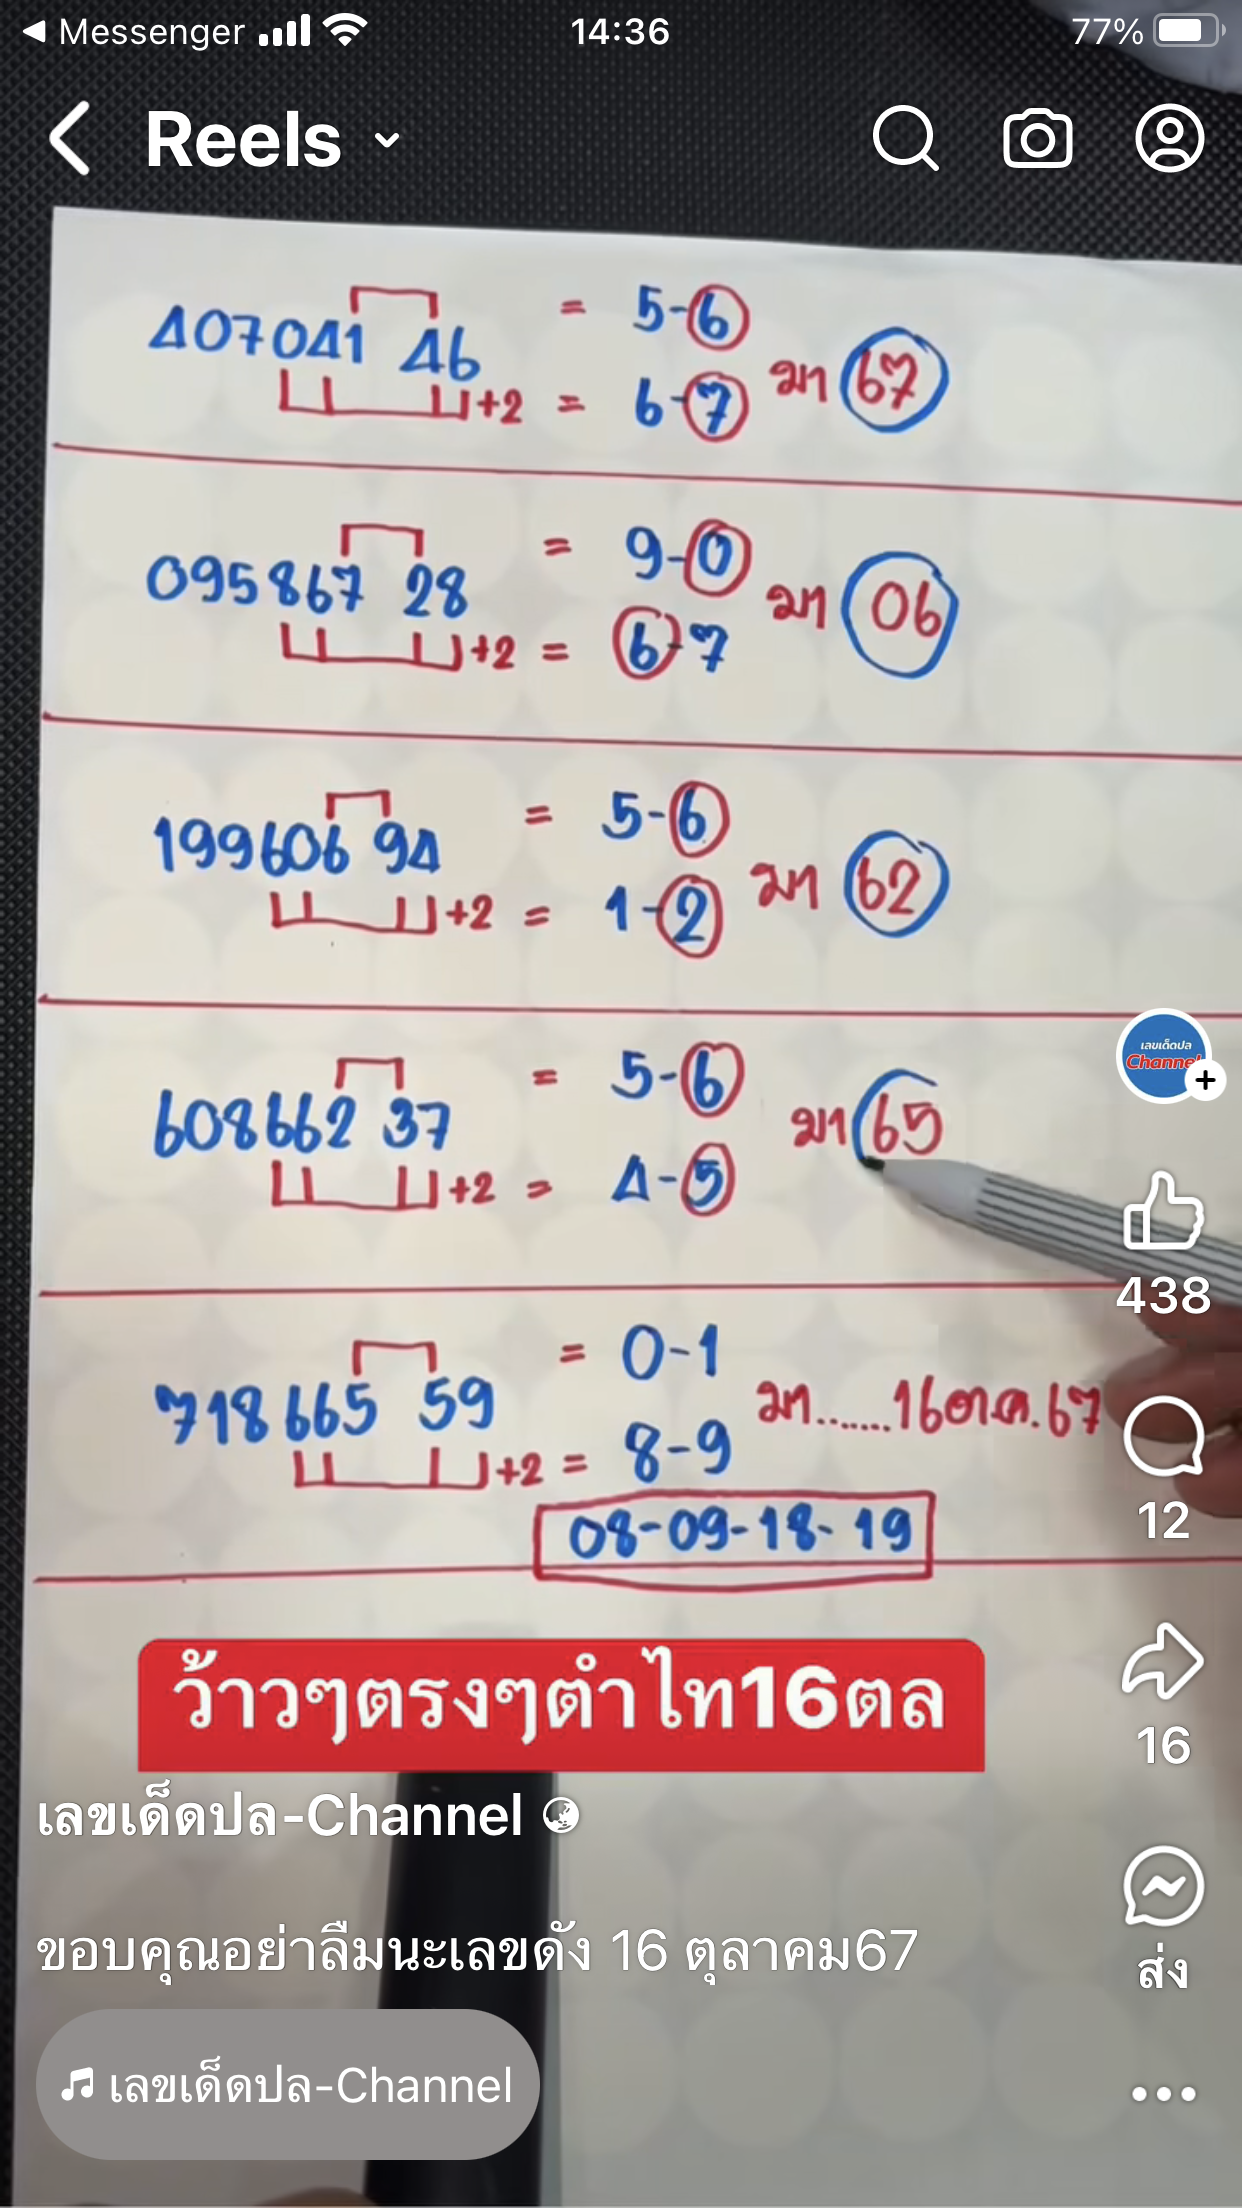 Messenger 14:36 77%
Reels
407041 46 = 5-6
+2 = 6-7 มา 67
095867 28 = 9-0
+2 = 6-7 มา 06
199606 94 = 5-6
+2 = 1-2 มา 62
608662 37 = 5-6
+2 = 4-5 มา 65
718665 59 = 0-1
+2 = 8-9 มา.......16ต.ค.67
08-09-18-19
เลขเด็ดปล
Channel
438
12
16
ส่ง
ว้าวๆตรงๆตำไท16ตล
เลขเด็ดปล-Channel
ขอบคุณอย่าลืมนะเลขดัง 16 ตุลาคม67
เลขเด็ดปล-Channel